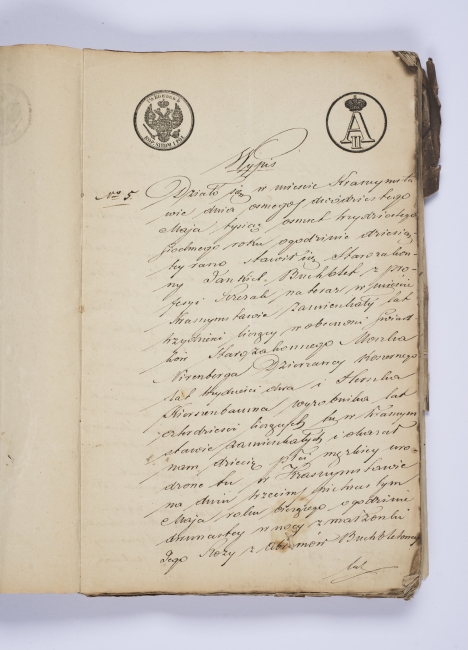 Wypis
No 5. Działo się w mieście Krasnymsta
wie dnia osmego/dwudziestego
Maja tysiąc osmset trzydziestego
siodmego roku o godzinie dziesią
tej rano stawił się Starozakon
ny Jankiel Buchblet z pro
fesyi
Krasnymstawie zamieszkały lat
liczący w obecności świad
ków Starozakonnego Moszka
Nirenberga Dzierzawcy
lat trzydzieści dwa i Herszka
Kierszenbauma wyrobnika lat
czterdzieści liczących tu w Krasnym
stawie zamieszkałych i okazał
nam dziecię płci męzkiey uro
dzone tu w Krasnymstawie
na dniu trzecim/piętnastym
Maja roku bieżącego o godzinie
dwunastey w nocy z małżonki
Jego Rozy z Buchbletowey